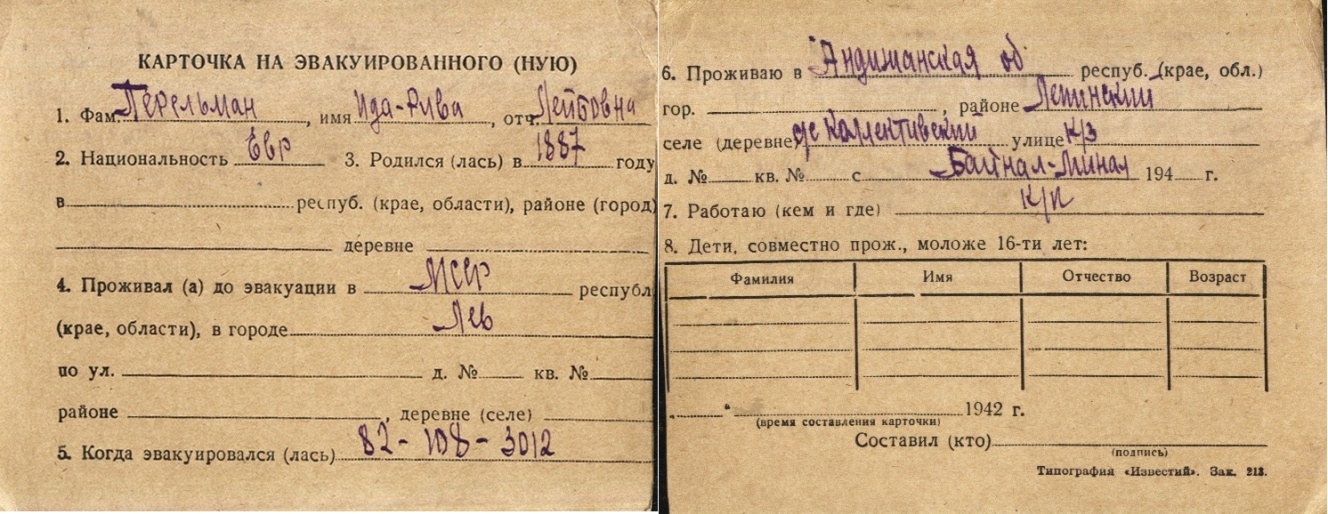 КАРТОЧКА НА ЭВАКУИРОВАННОГО (НУЮ)
1. Фам. Перельман, имя Ида-Рива, отч. Лейбовна
2. Национальность Евр 3. Родился (лась) в 1887 году
в респуб. (крае, области), районе (город)
деревне
4. Проживал (а) до эвакуации в МССР республ
(крае, области), в городе
по ул. д. № кв. №
районе , деревне (селе)
5. Когда эвакуировался (лась) 82-108-3012
6. Проживаю в Андижанская об респуб. (крае, обл.)
гор. , районе Ленинский
селе (деревне) с/с Коллективский улице К/з
д. № кв. № с 194 г.
7. Работаю (кем и где)
8. Дети, совместно прож., моложе 16-ти лет:
Фамилия Имя Отчество Возраст
1942 г.
(время составления карточки)
Составил (кто)
(подпись)
Типография «Известий». Зак. 213.